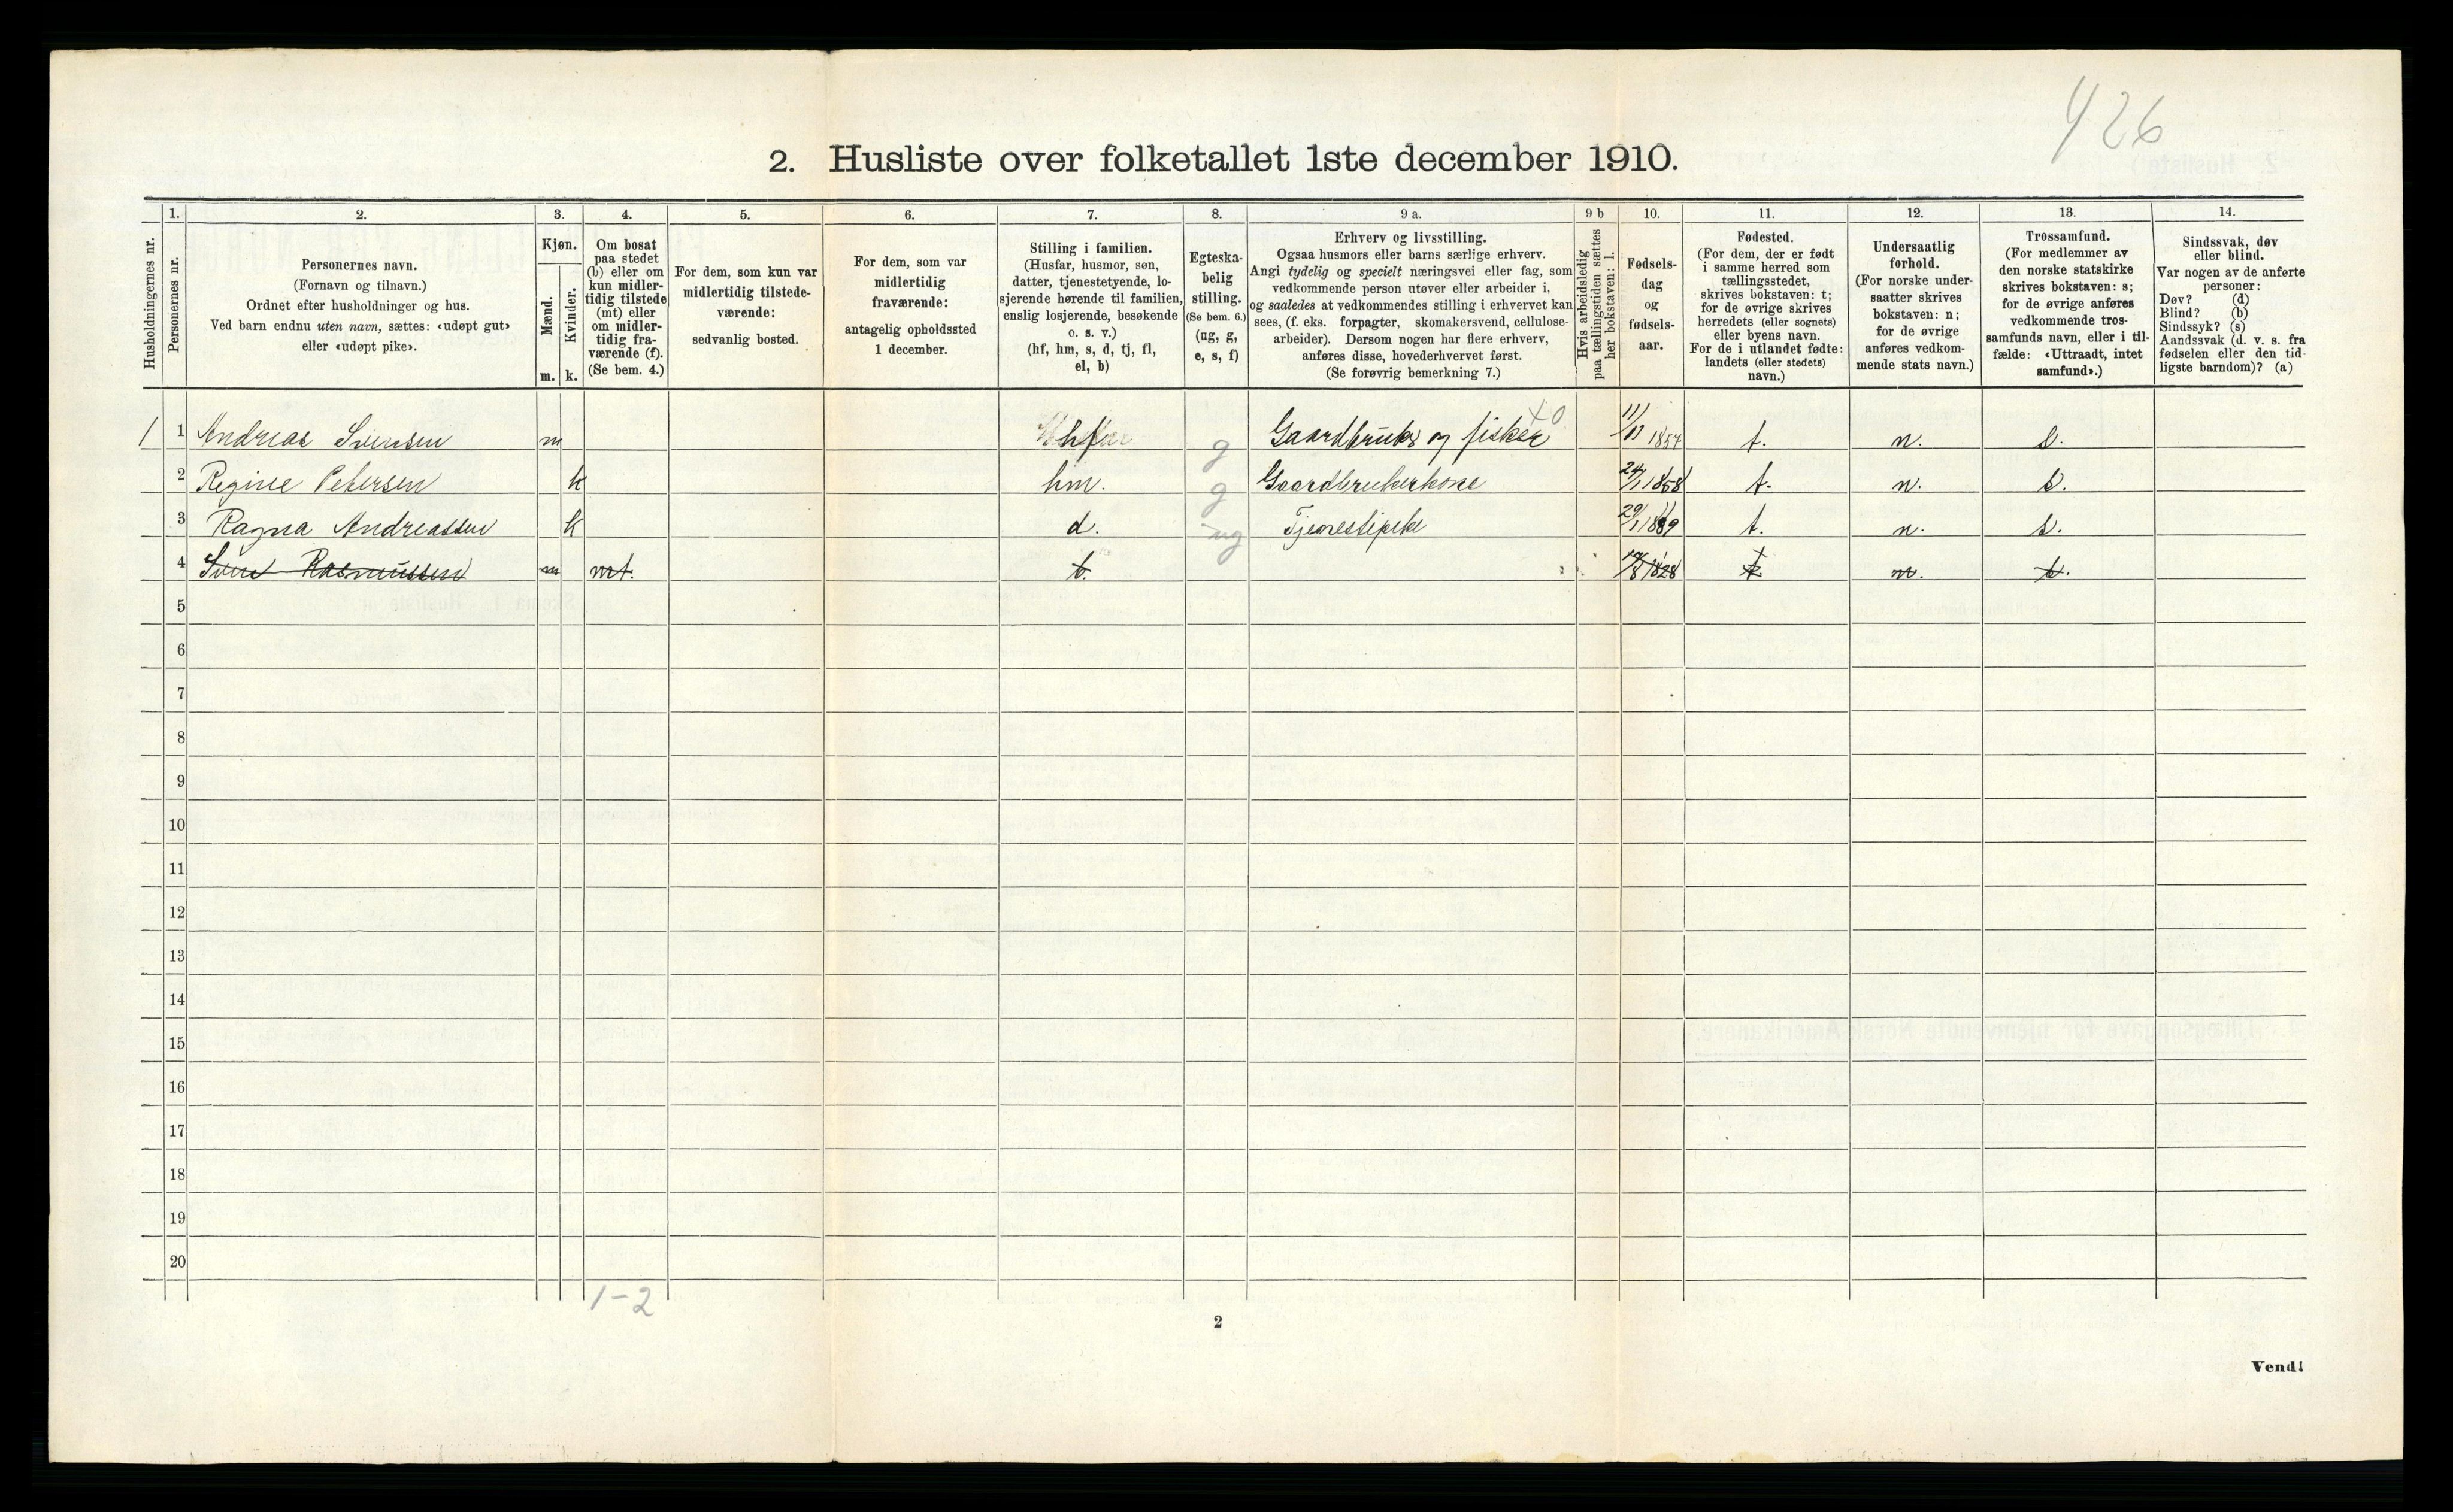 426
2. Husliste over folketallet 1ste december 1910.
Husholdningernes nr.
1.
Personernes nr.
2.
Personernes navn.
(Fornavn og tilnavn.)
Ordnet efter husholdninger og hus.
Ved barn endnu uten navn, sættes: «udøpt gut»
eller «udøpt pike».
3.
Kjøn.
Mænd.
Kvinder.
m. k.
4.
Om bosat
paa stedet
(b) eller om
kun midler-
tidig tilstede
(mt) eller
om midler-
tidig fra-
værende (f).
(Se bem. 4.)
5.
For dem, som kun var
midlertidig tilstede-
værende:
sedvanlig bosted.
6.
For dem, som var
midlertidig
fraværende:
antagelig opholdssted
1 december.
7.
Stilling i familien.
(Husfar, husmor, søn,
datter, tjenestetyende, lo-
sjerende hørende til familien,
enslig losjerende, besøkende
o. s. v.)
(hf, hm, s, d, tj, fl,
el, b)
8.
Egteska-
belig
stilling.
(Se bem. 6.)
(ug, g,
e, s, f)
9 a.
Erhverv og livsstilling.
Ogsaa husmors eller barns særlige erhverv.
Angi tydelig og specielt næringsvei eller fag, som
vedkommende person utøver eller arbeider i,
og saaledes at vedkommendes stilling i erhvervet kan
sees, (f. eks. forpagter, skomakersvend, cellulose-
arbeider). Dersom nogen har flere erhverv,
anføres disse, hovederhvervet først.
(Se forøvrig bemerkning 7.)
9 b
Hvis arbeidsledig
paa tællingstiden sættes
her bokstaven: l.
10.
Fødsels-
dag
og
fødsels-
aar.
11.
Fødested.
(For dem, der er født
i samme herred som
tællingsstedet,
skrives bokstaven: t;
for de øvrige skrives
herredets (eller sognets)
eller byens navn.
For de i utlandet fødte:
landets (eller stedets)
navn.)
12.
Undersaatlig
forhold.
(For norske under-
saatter skrives
bokstaven: n;
for de øvrige
anføres vedkom-
mende stats navn.)
13.
Trossamfund.
(For medlemmer av
den norske statskirke
skrives bokstaven: s;
for de øvrige anføres
vedkommende tros-
samfunds navn, eller i til-
fælde: «Uttraadt, intet
samfund».)
14.
Sindssvak, døv
eller blind.
Var nogen av de anførte
personer:
Døv? (d)
Blind? (b)
Sindssyk? (s)
Aandssvak (d. v. s. fra
fødselen eller den tid-
ligste barndom)? (a)
1 1 Andreas Svensen m g Gaardbruker og fisker 1857 t. n. s.
2 Regine Petersen k hm. g Gaardbrukerkone 24/1 1858 t. n. s.
3 Ragna Andreassen k d. ug Tjenestepike 29/1 1889 t. n. s.
4 Sven Rasmussen m mt. b. 1828 t n. s.
5
6
7
8
9
10
11
12
13
14
15
16
17
18
19
20
1-2
2
Vend!